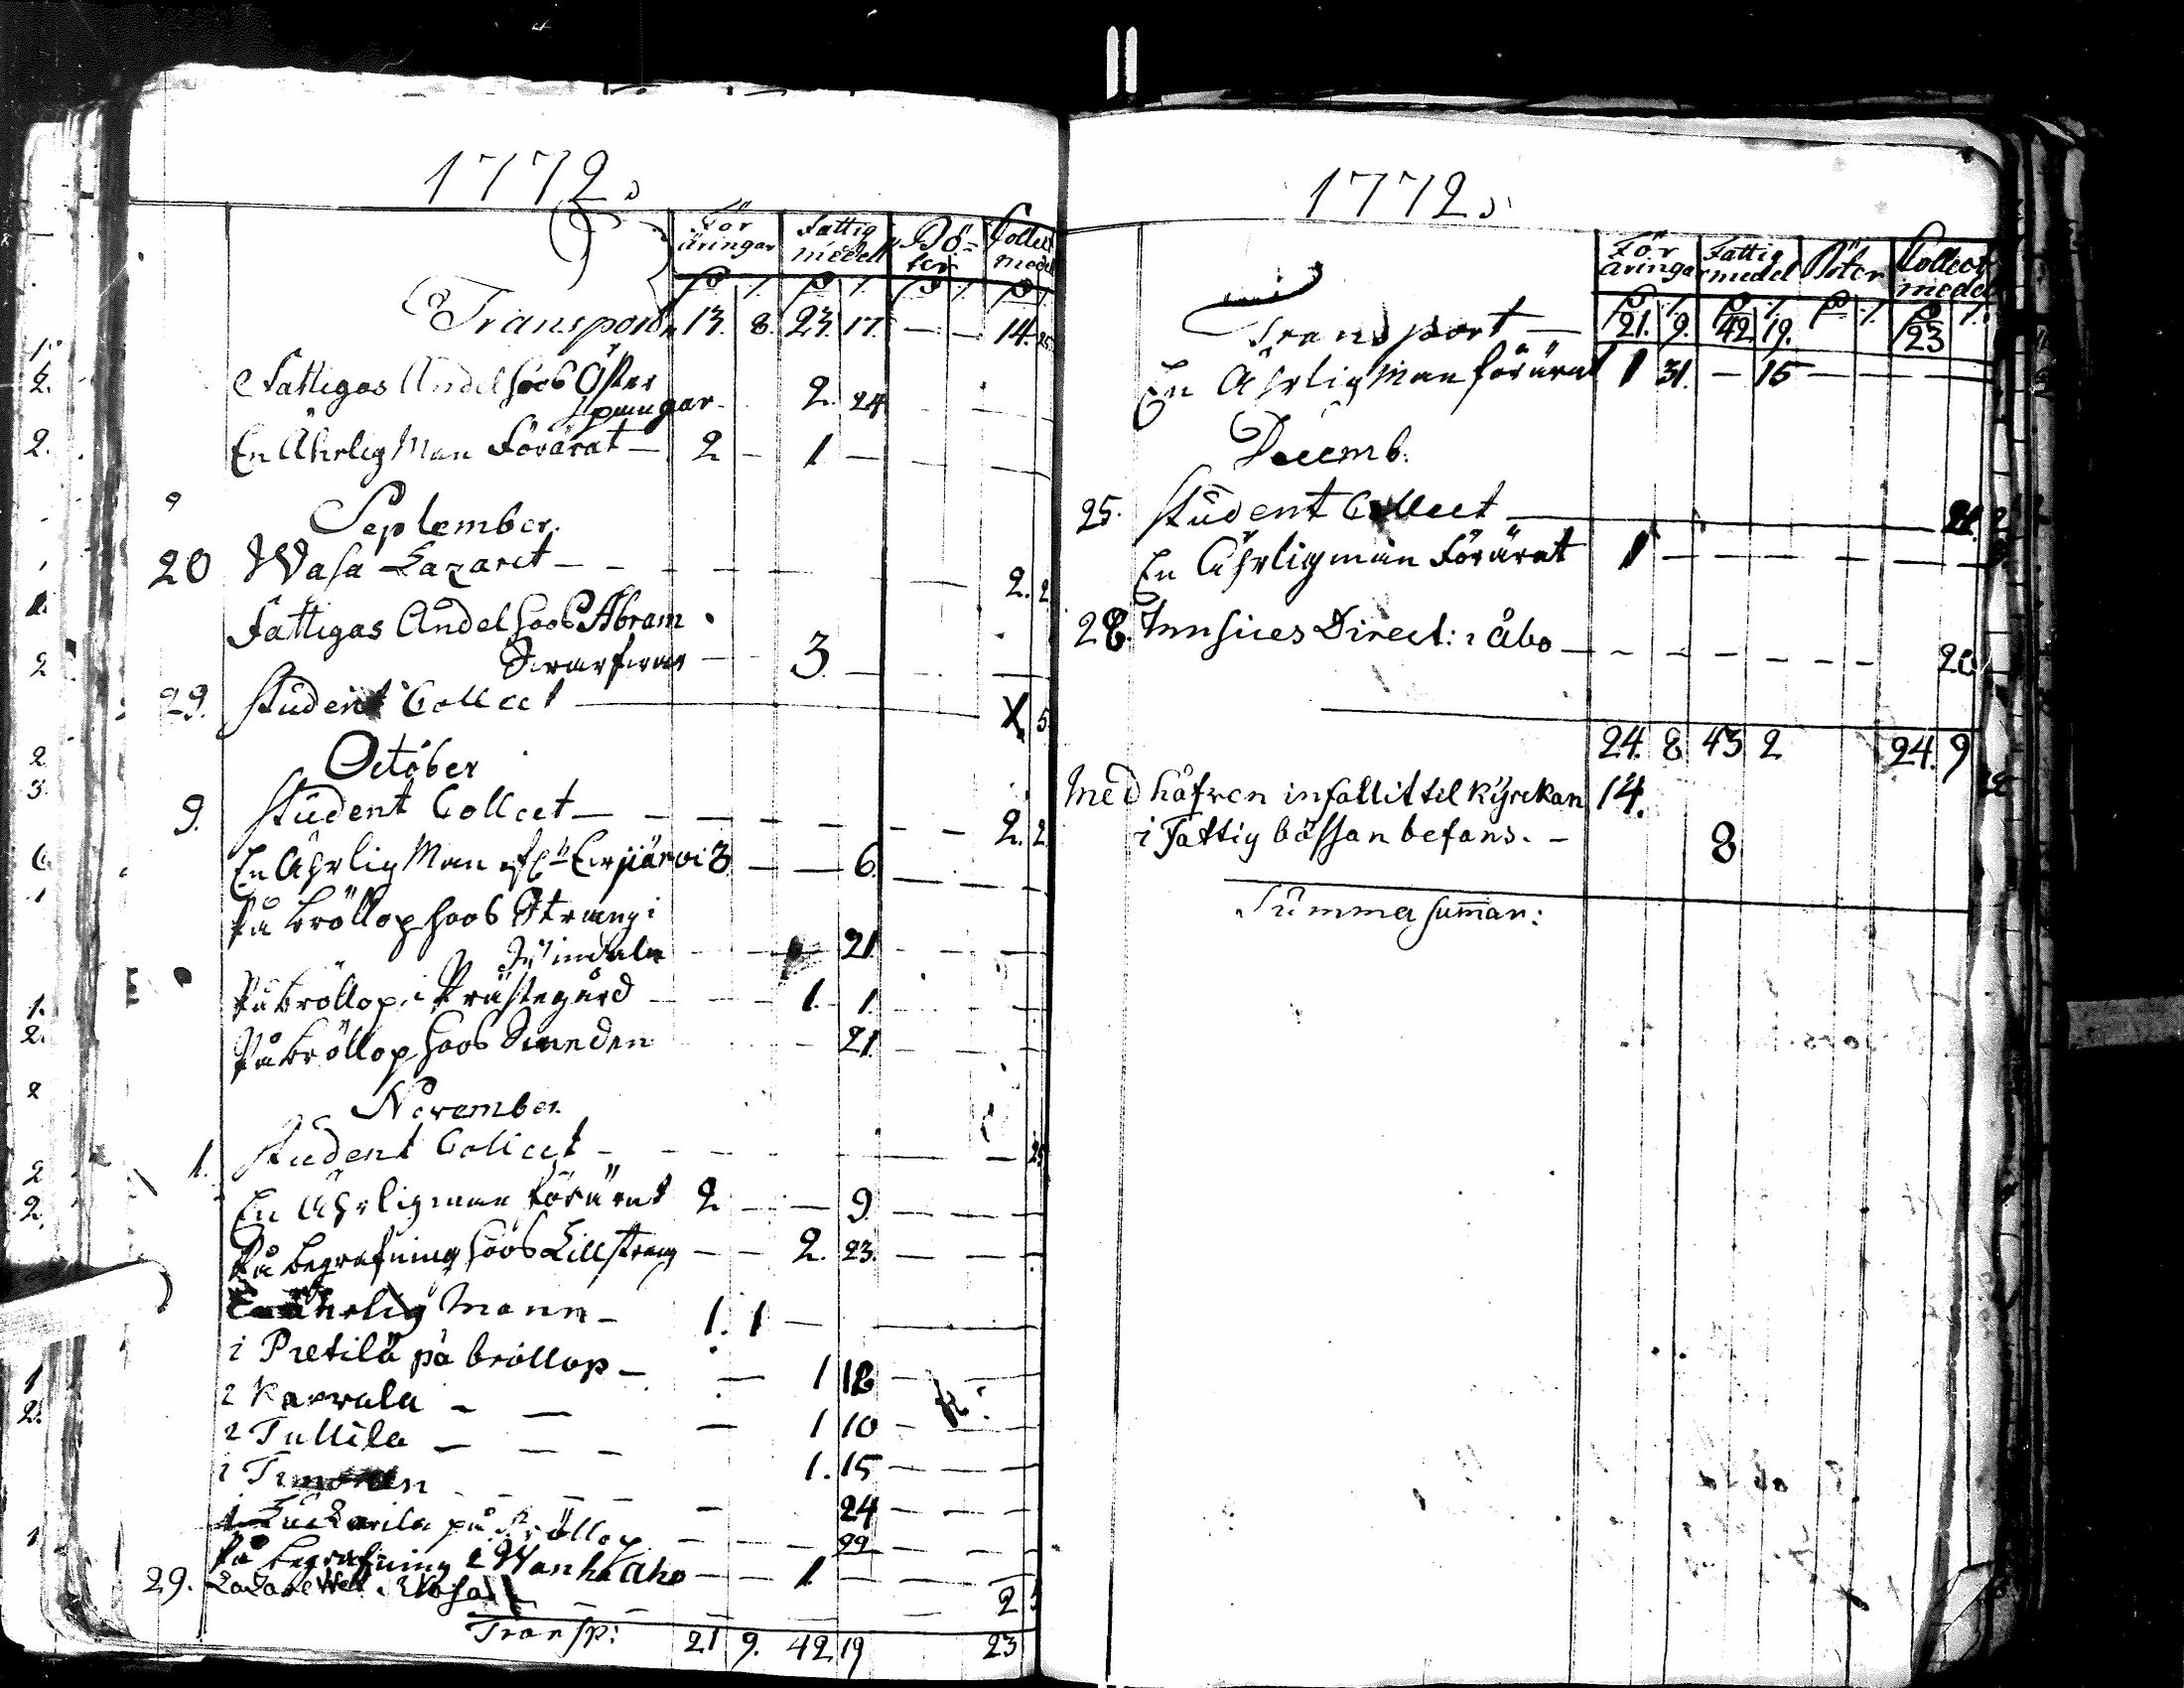 1772.
För äringar Fattig medell Bö=ter Collect medel
Transport 13. 8. 23. 17. — — 14. 25.
Fattigas Andel hoos Öster
spungar 2. 24
En Ährlig Man Förärat — 2 — 1 — — —
September.
20 Wasa Lazaret — — — — — — 2. 2
Fattigas Andel hoos Abram
3. — —
29. Student Collect — X 5
October
9. Student Collect — — — — — — 2. 2
En Ährlig Man 3 — — 6. — — —
På bröllop hoos Strang i
Windala — — 21 — — —
På bröllop i Prästegård — — 1. 1. — — —
På bröllop hoos Sweden — 21. — — —
November.
1. Student Collect — — — — — — 25
En Ährlig man förärat 2 — — 9. — — —
På begrafning hoos Lillstrang — — 2. 23. — — —
En ährlig Mann — 1. 1 — — —
i Pretilä på bröllop — — 1 18 — —
i Karvala — — — 1 10 — — —
i Tullila — — — 1. 15 — — —
i Timonen — — — — 24 — — —
på Bröllop — — 22 — — —
På begrafning i Wanhaaho — — 1 — — —
29. Wasa — — — — — 2
Transp: 21 9. 42 19 23
1772.
För äringar Fattig medel Böter Collect medel
Transport — 21. 9. 42 19. 23
En Ährlig Man förärat 1 31. — 15 — — — —
Decemb.
25. Student Collect — 21.
En Ährlig man Förärat 1 — — — — — —
28. Direct: i Åbo — — — — — — — 20
24. 8 43 2 24. 9
Med håfven infallit til kyrckan 14.
i Fattig bössan befans. — 8
Summa summar: